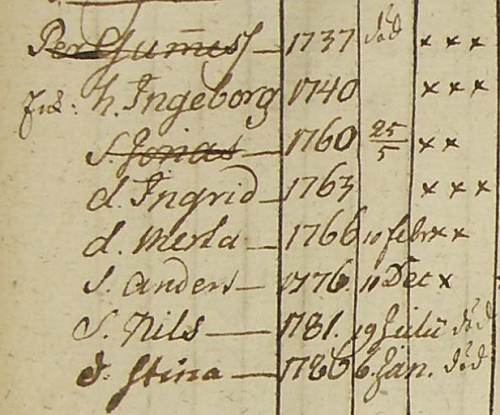 Per Gumess 1737 död x x x
h. Ingeborg 1740 x x x
S. Jonas 1760 25/5 x x
d. Ingrid 1763 x x x
d. Merta 1766 10 febr x x
S. Anders 1776 11 Dec x
S. Nils 1781. 19 Julii död
d. Stina 1786 6. Jan. död